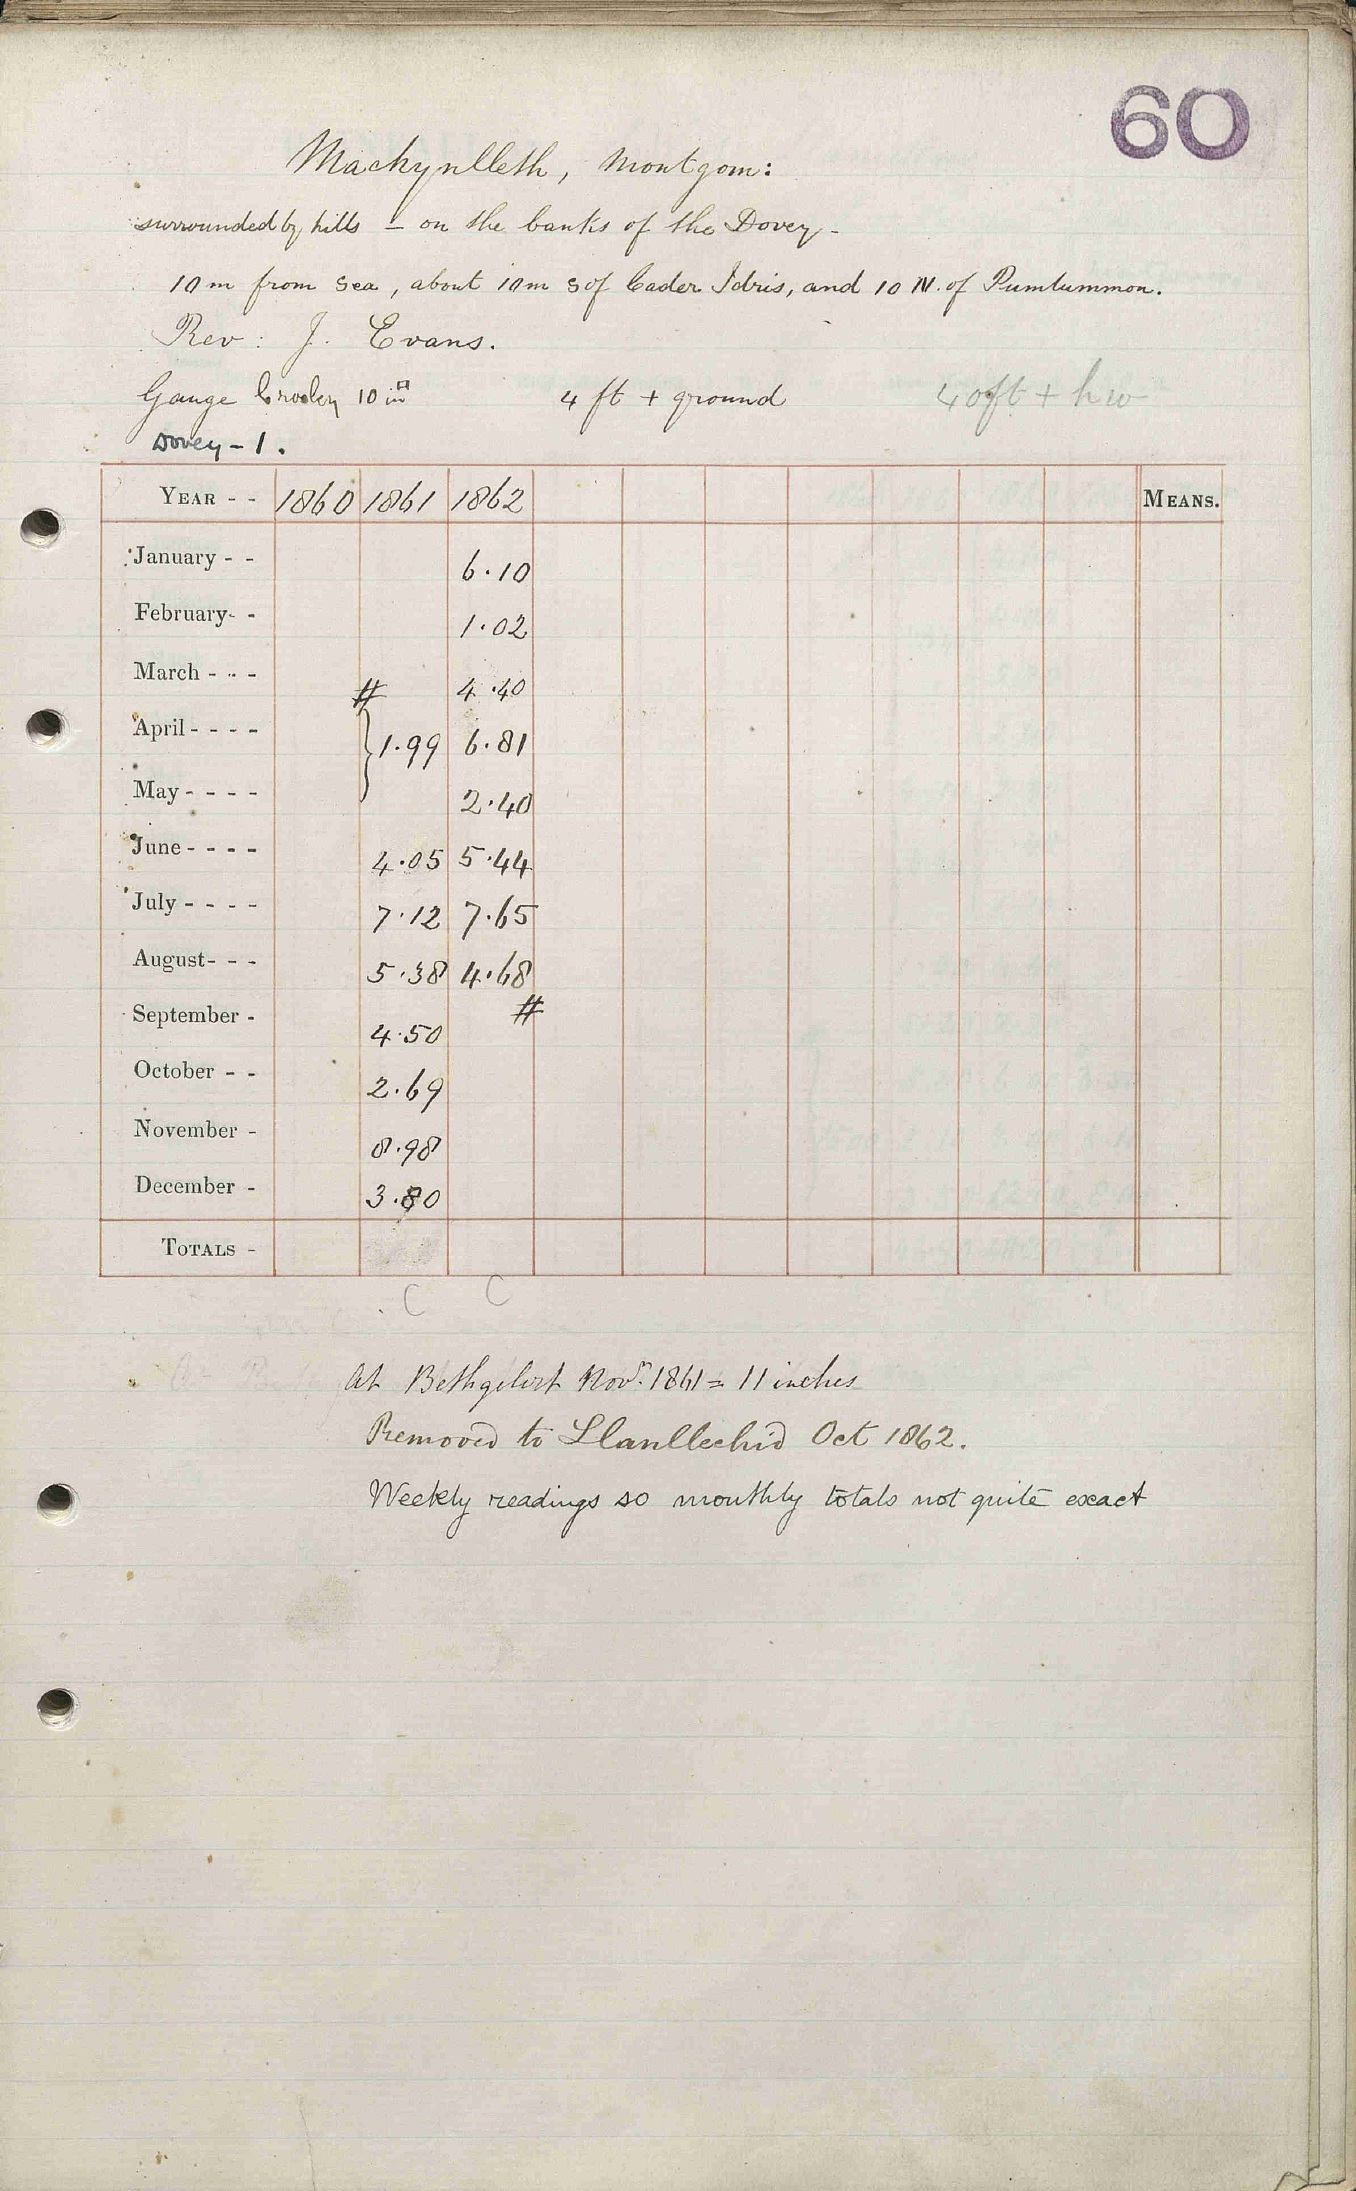 60
Machynlleth, Montgom:
surrounded by hills - on the banks of the Dovey -
10 m from sea, about 10 m S of Cader Idris, and 10 N. of Pumlummon.
Rev: J. Evans.
Gauge Crosley 10 in 4 ft + ground 40ft + hw
Dovey - 1.
YEAR - - 1860 1861 1862 MEANS.
January - - 6.10
February - - 1.02
March - - - # 4.40
April - - - - } 1.99 6.81
May - - - - 2.40
June - - - - 4.05 5.44
July - - - - 7.12 7.65
August - - - 5.38 4.68
September - 4.50 #
October - - 2.69
November - 8.98
December - 3.80
TOTALS -
C C
At Bethgelert Novr. 1861 = 11 inches
Removed to Llanllechid Oct 1862.
Weekly readings so monthly totals not quite exact